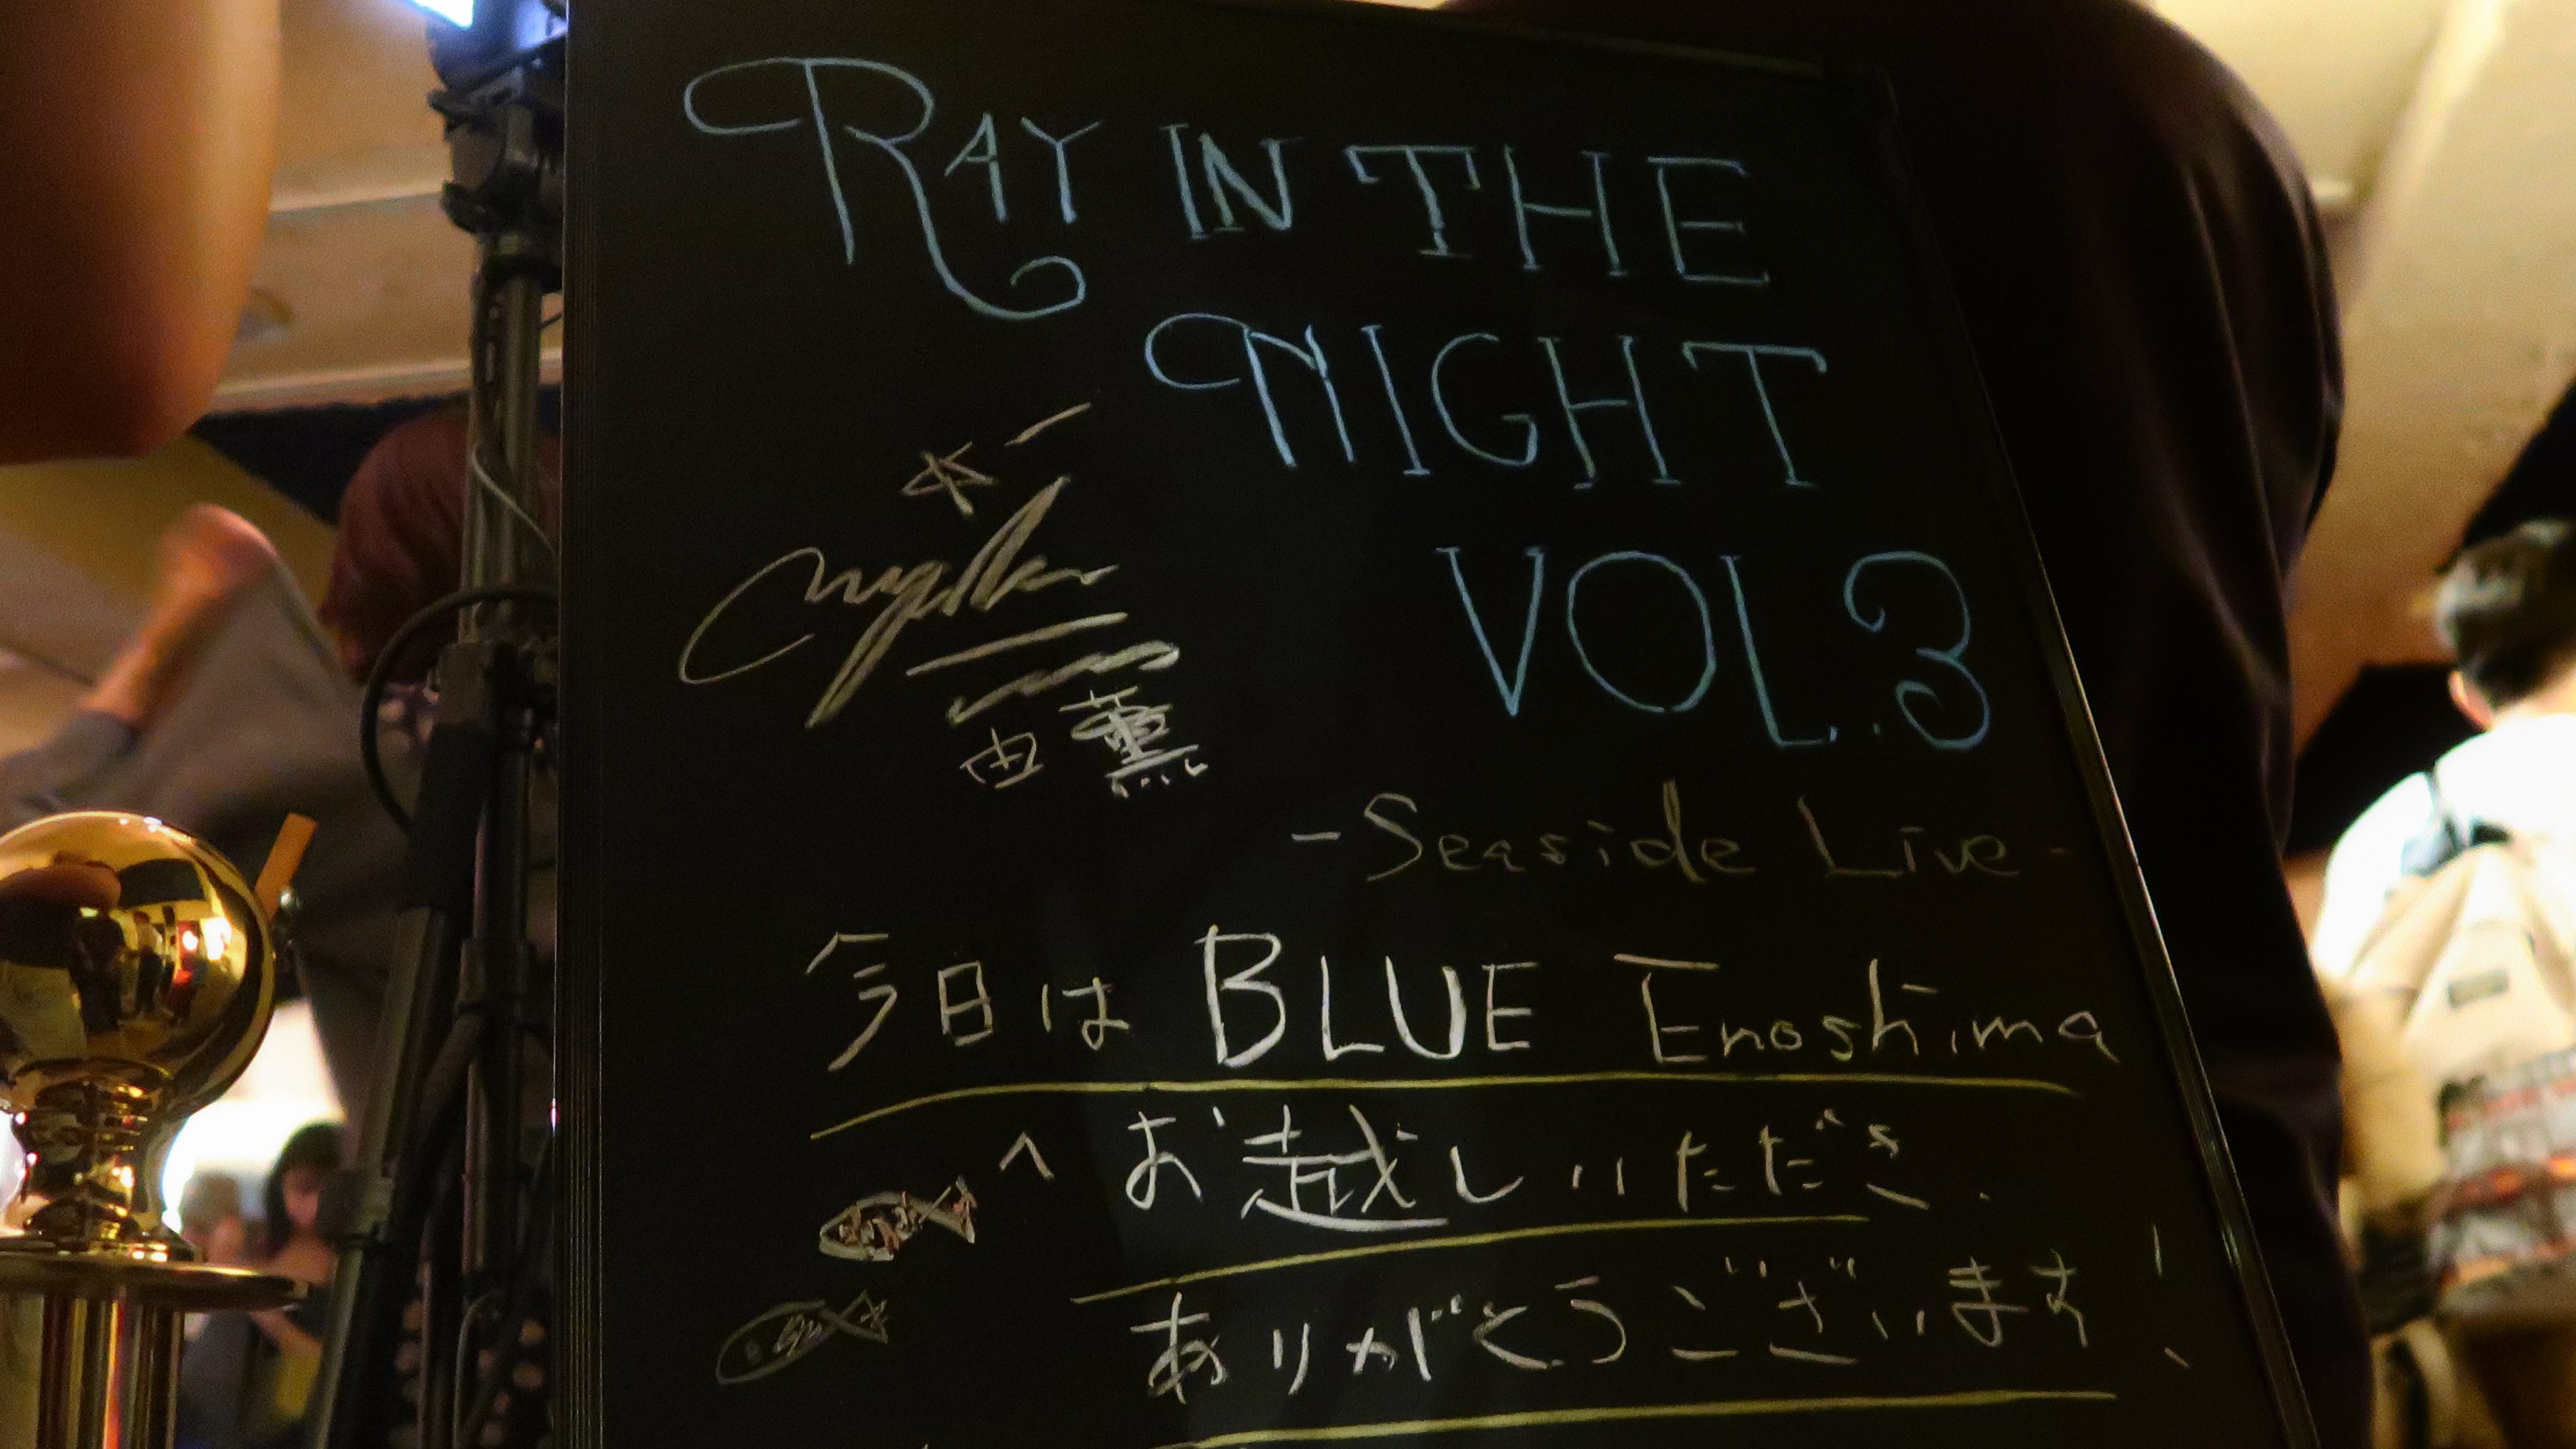 RAY IN THE
NIGHT
VOL.3
由薫
-Seaside Live-
今日は BLUE Enoshima
へ お越しいただき
ありがとうございます!